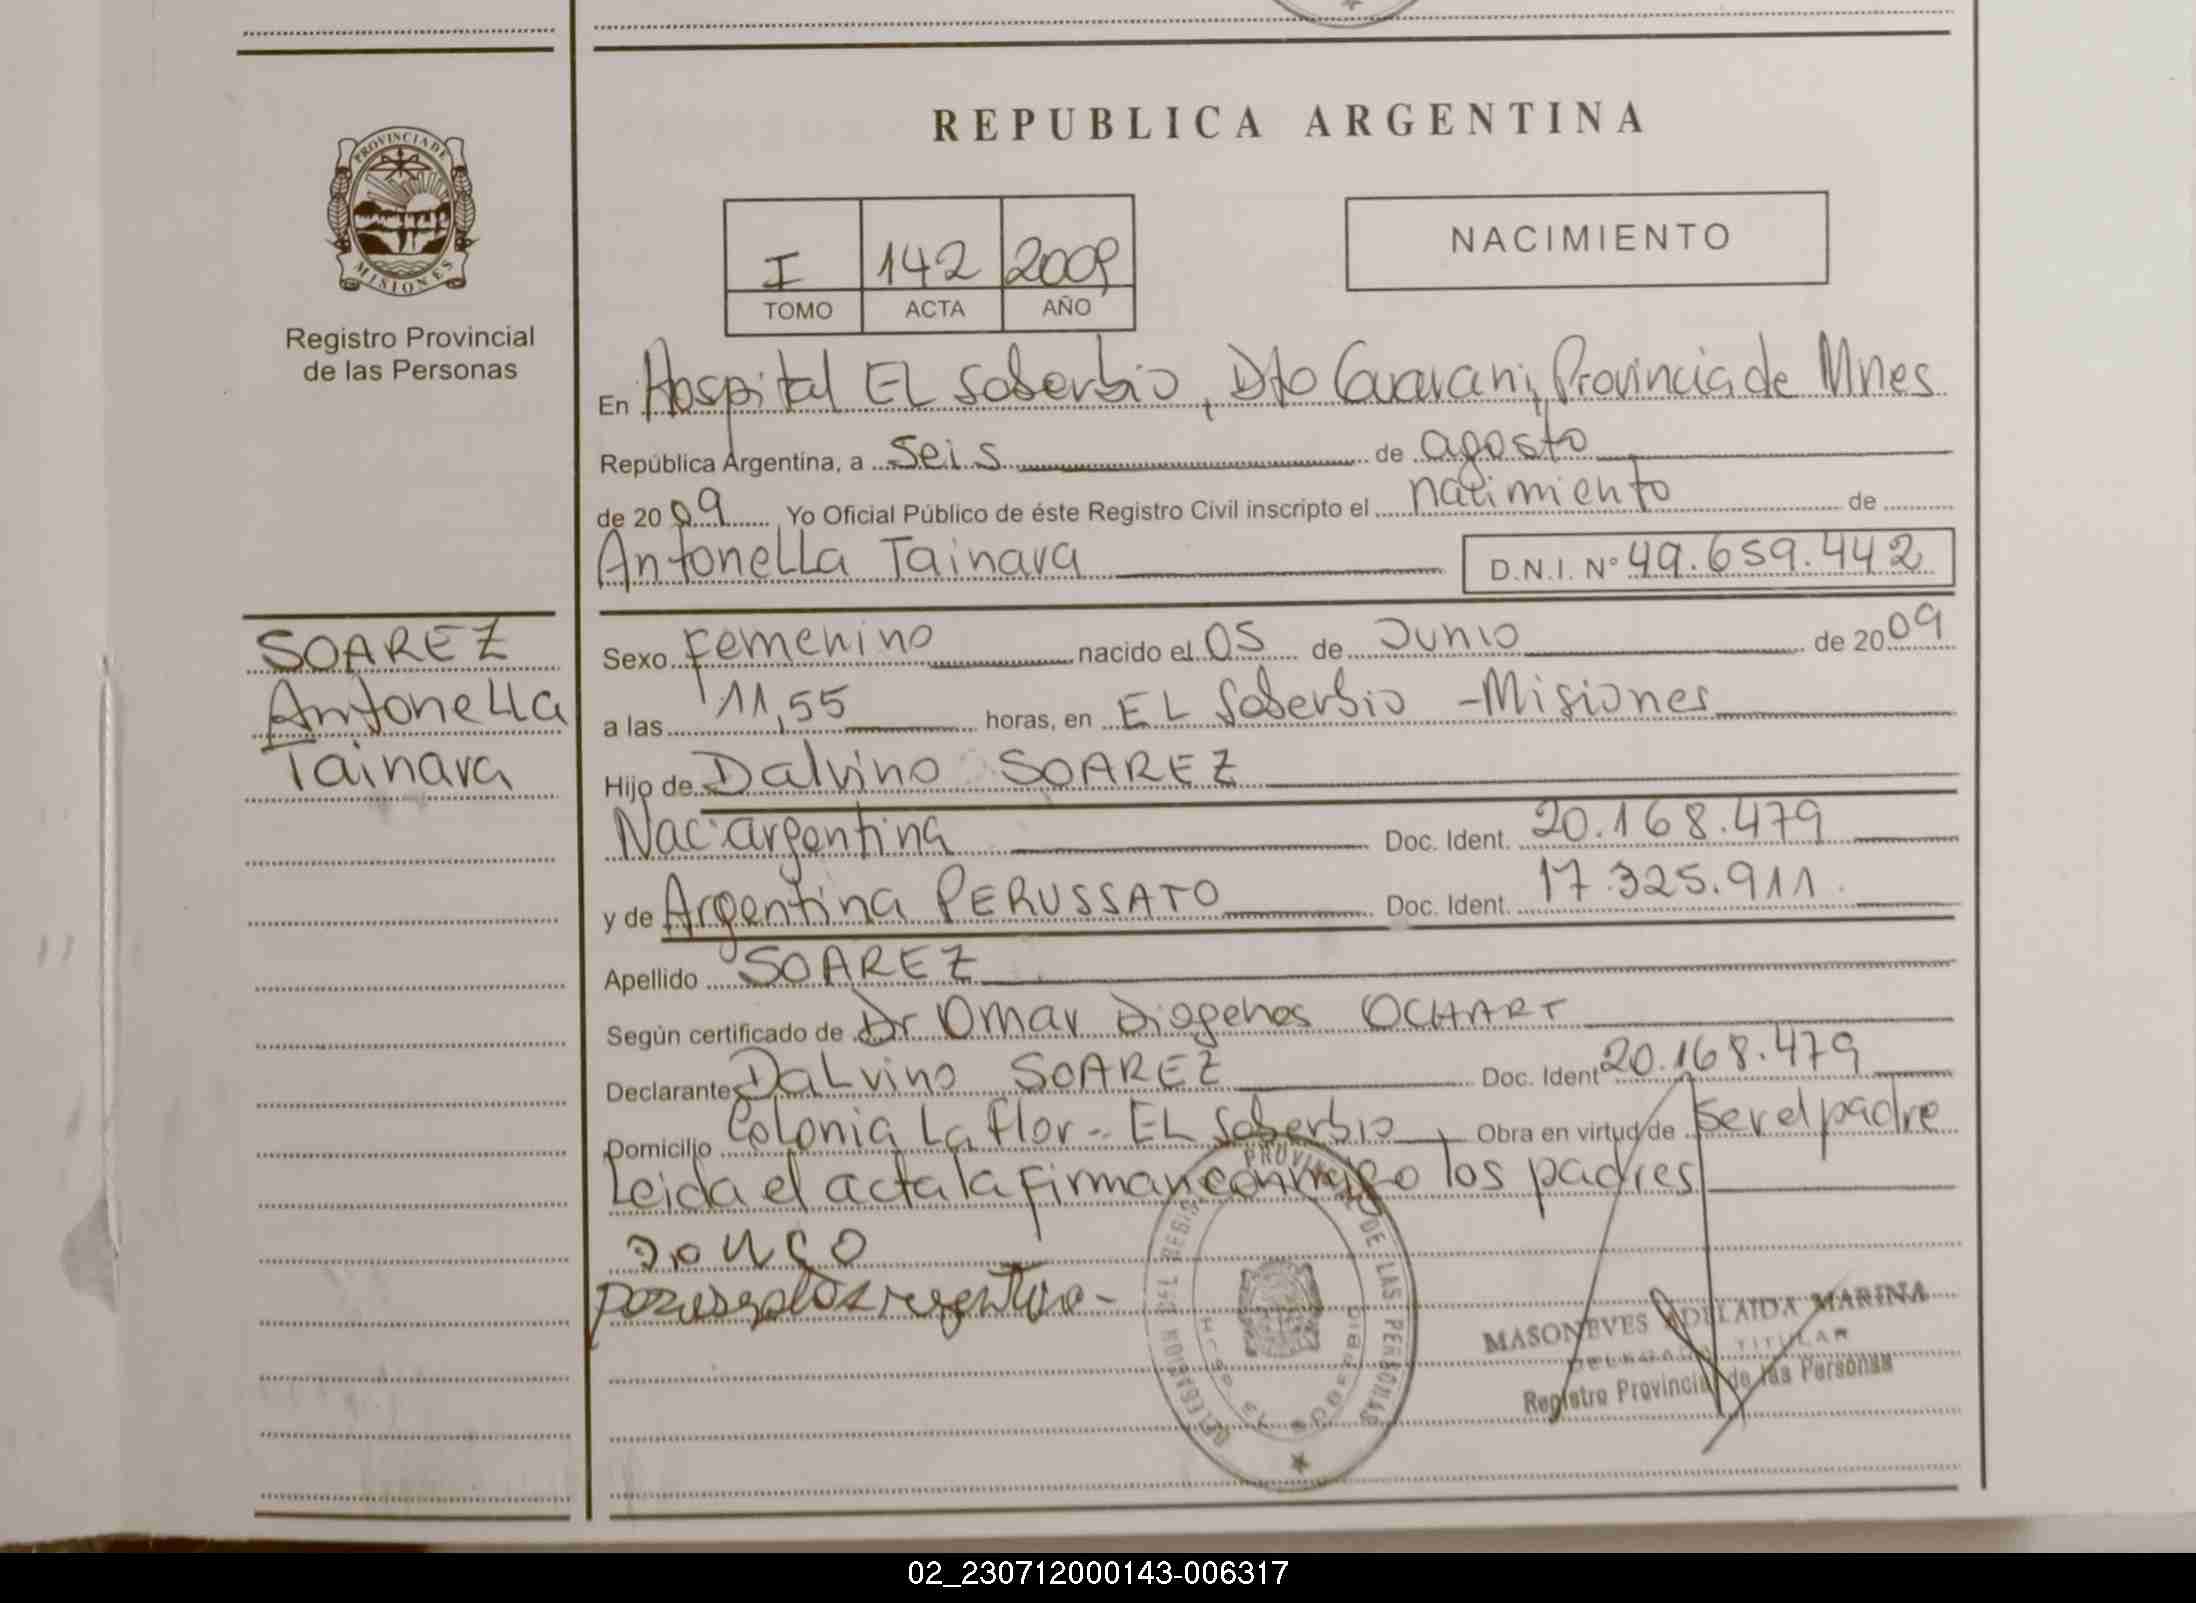 REPUBLICA ARGENTINA
PROVINCIA DE
MISIONES
Registro Provincial
de las Personas
I 142 2009
TOMO ACTA AÑO
NACIMIENTO
En Hospital EL Soberbio, Dto Guarani, Provincia de Mnes
República Argentina, a seis de agosto
de 2009 Yo Oficial Público de éste Registro Civil inscripto el nacimiento de
Antonella Tainara D.N.I. N° 49.659.442
SOAREZ
Antonella
Tainara
Sexo Femenino nacido el 05 de Junio de 2009
a las 11,55 horas, en EL Soberbio - Misiones
Hijo de Dalvino SOAREZ
Nac: argentina Doc. Ident. 20.168.479
y de Argentina PERUSSATO Doc. Ident. 17.325.911
Apellido SOAREZ
Según certificado de Dr Omar Diogenes OCHART
Declarante Dalvino SOAREZ Doc. Ident 20.168.479
Domicilio Colonia La Flor - EL Soberbio, Obra en virtud de ser el padre
Leida el acta la firman conmigo los padres
DELEGACION DEL REGISTRO PROVINCIAL DE LAS PERSONAS
MASONEVES ADELAIDA MARINA
DELEGADA TITULAR
Registro Provincial de las Personas
02_230712000143-006317